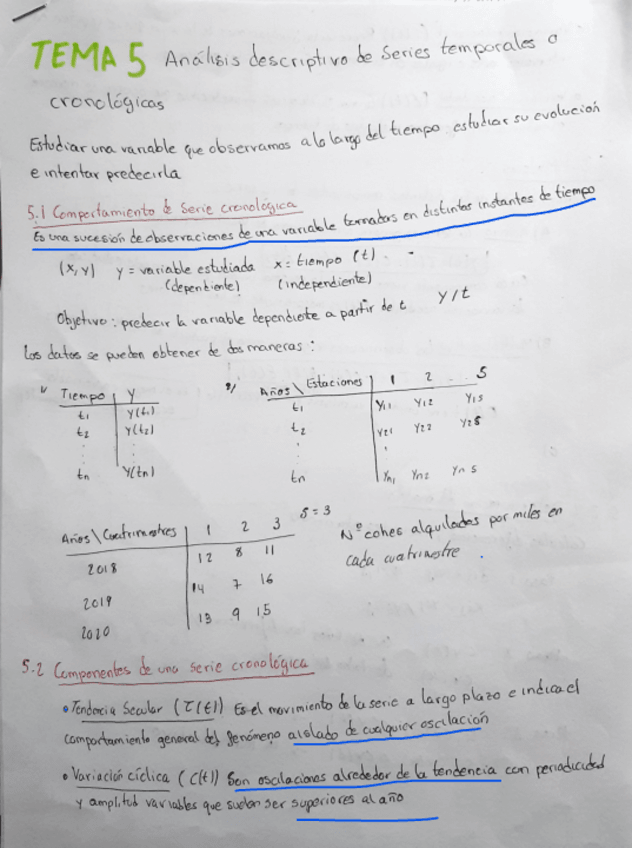 TEMA 5 Análisis descriptivo de Series temporales o
cronológicas
Estudiar una variable que observamos a lo largo del tiempo, estudiar su evolución
e intentar predecirla
5.1 Comportamiento de Serie cronológica
Es una sucesión de observaciones de una variable tomadas en distintos instantes de tiempo
(x,y) y = variable estudiada x = tiempo (t)
(dependiente) (independiente)
Objetivo: predecir la variable dependiente a partir de t y/t
Los datos se pueden obtener de dos maneras:
1/ Tiempo y
t1 y(t1)
t2 y(t2)
tn y(tn)
2/ Años \ Estaciones 1 2 ... S
t1 y11 y12 y1s
t2 y21 y22 y2s
tn yn1 yn2 yns
Años \ Cuatrimestres 1 2 3 S = 3
2018 12 8 11
2019 14 7 16
2020 13 9 15
Nº cohes alquilados por miles en
cada cuatrimestre
5.2 Componentes de una serie cronológica
• Tendencia Secular (T(t)) Es el movimiento de la serie a largo plazo e indica el
comportamiento general del fenómeno aislado de cualquier oscilación
• Variación cíclica (C(t)) Son oscilaciones alrededor de la tendencia con periodicidad
y amplitud variables que suelen ser superiores al año